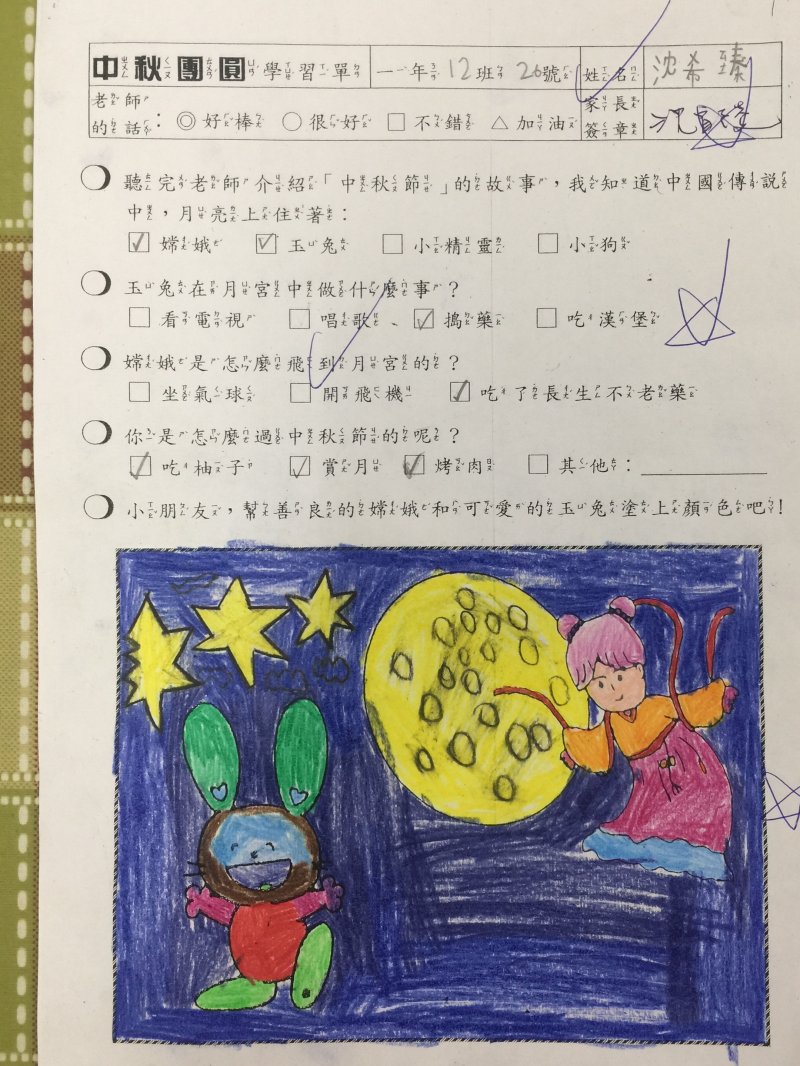 中秋團圓學習單 一年12班26號 姓名 沈希臻
老師的話：◎好棒 ○很好 □不錯 △加油 家長簽章
聽完老師介紹「中秋節」的故事，我知道中國傳說
中，月亮上住著：
☑嫦娥 ☑玉兔 □小精靈 □小狗
玉兔在月宮中做什麼事？
□看電視 □唱歌、☑搗藥 □吃漢堡
嫦娥是怎麼飛到月宮的？
□坐氣球 □開飛機 ☑吃了長生不老藥
你是怎麼過中秋節的呢？
☑吃柚子 ☑賞月 ☑烤肉 □其他：
小朋友，幫善良的嫦娥和可愛的玉兔塗上顏色吧！